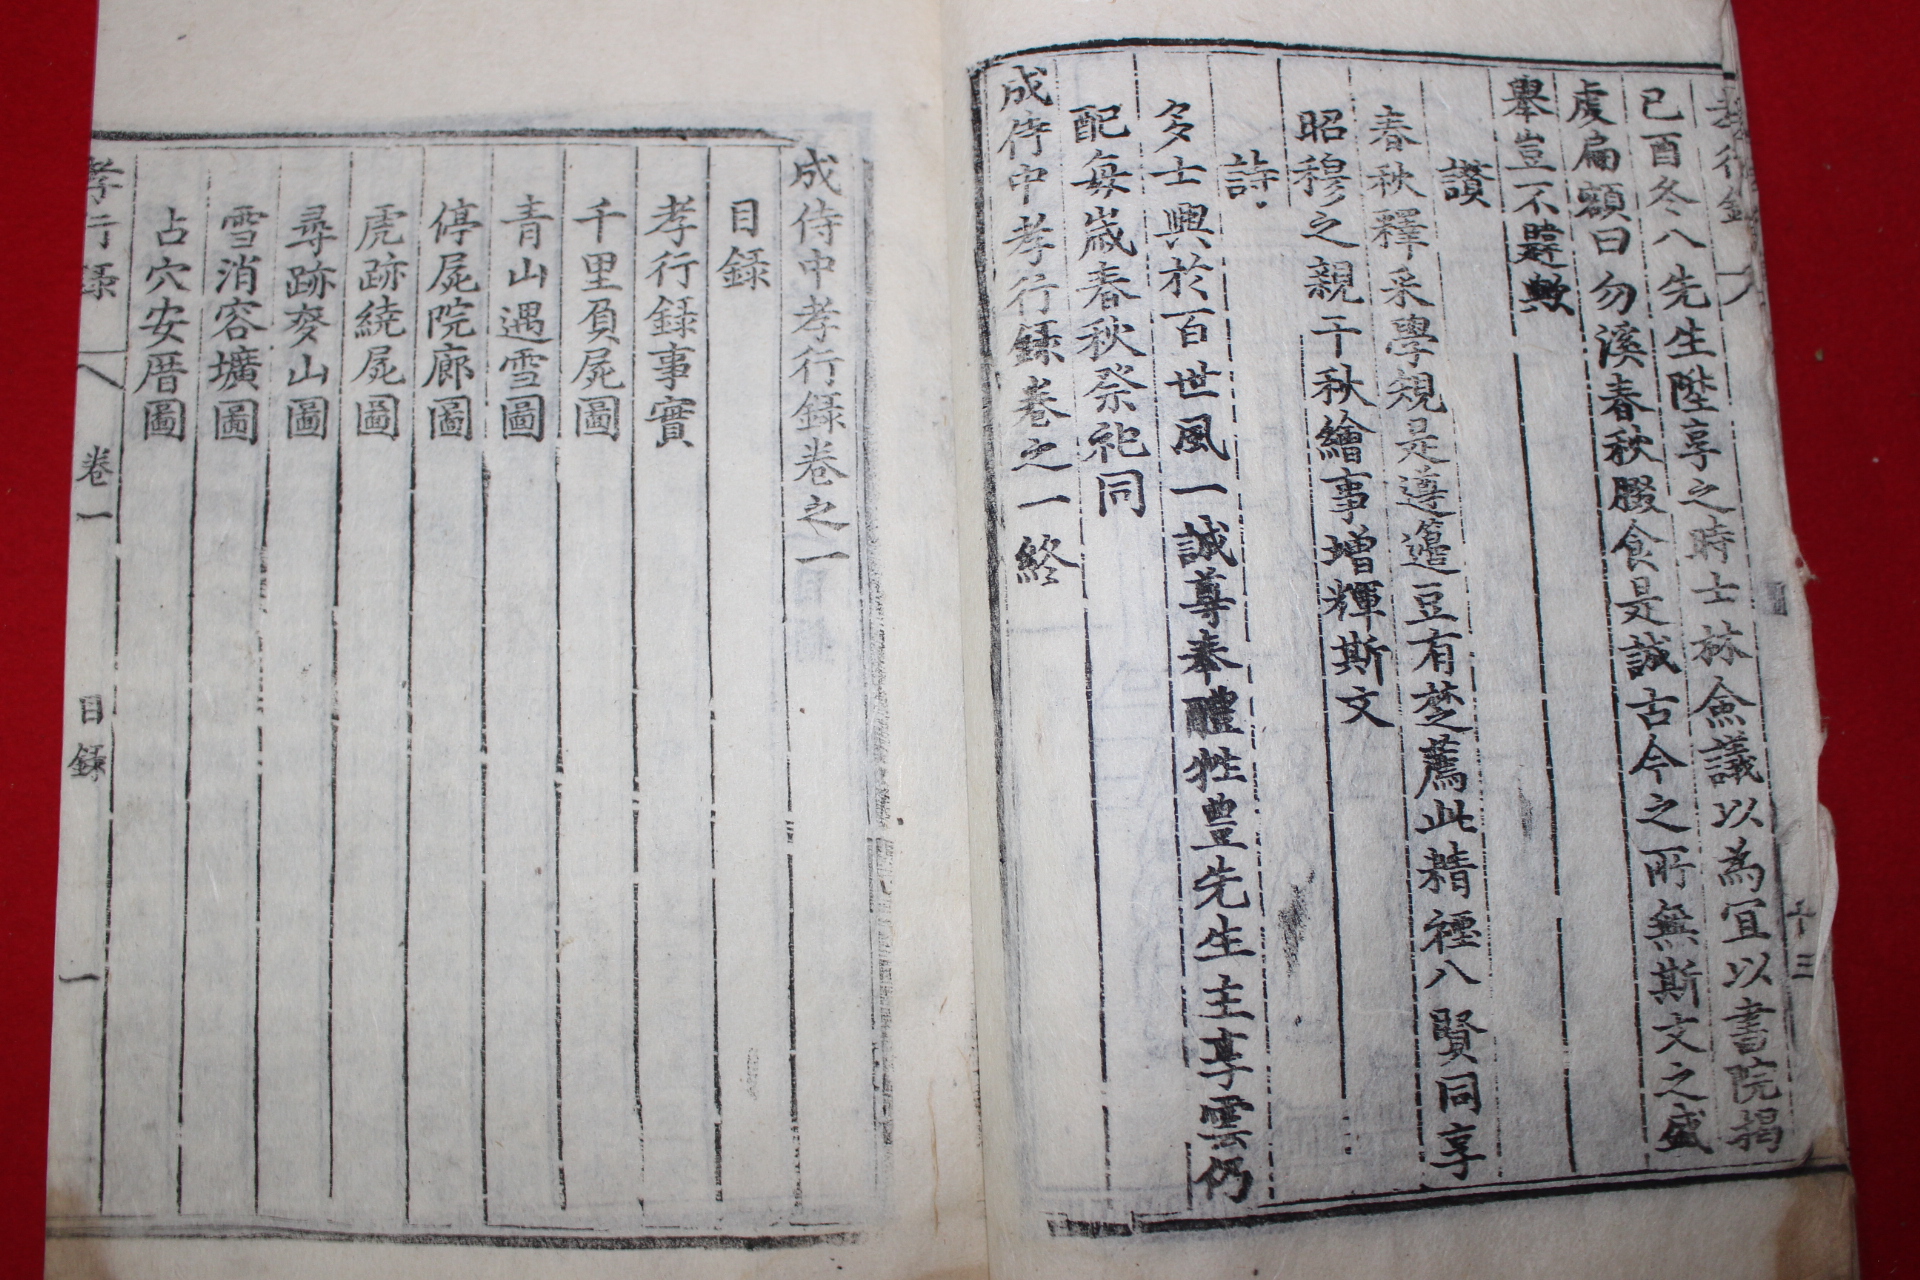 孝行錄
十三
己酉冬八先生陞享之時士林僉議以為宜以書院揭
處扁額曰勿溪春秋腏食是誠古今之所無斯文之盛
擧豈不韙歟
讃
春秋釋采學規是遵籩豆有楚薦此精禋八賢同享
昭穆之親千秋繪事增輝斯文
詩
多士興於百世風一誠尊奉醴牲豊先生主享雲仍
配每歲春秋祭祀同
成侍中孝行錄卷之一終
成侍中孝行錄卷之一
目錄
孝行錄事實
千里負屍圖
青山遇雪圖
停屍院廊圖
虎跡繞屍圖
尋跡麥山圖
雪消容壙圖
占穴安厝圖
孝行錄 卷一 目錄 一